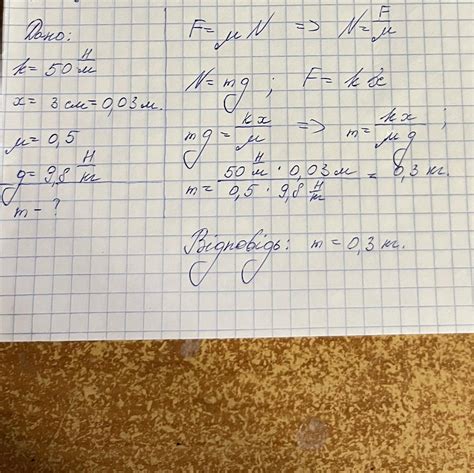 Дано:
k = 50 Н/м
x = 3 см = 0,03 м.
μ = 0,5
g = 9,8 Н/кг
m - ?
F = μN => N = F/μ
N = mg; F = kx
mg = kx/μ => m = kx/μg;
m = 50 Н/м · 0,03 м / 0,5 · 9,8 Н/кг = 0,3 кг.
Відповідь: m = 0,3 кг.